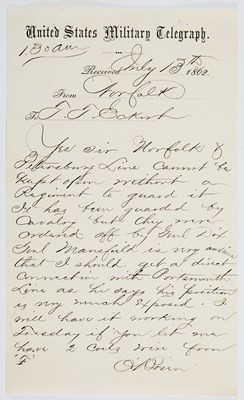 United States Military Telegraph.
1,30 am
Received July 13th 1862
From Norfolk
To T. T. Eckert
Yes Sir Norfolk &
Petersburg Line cannot be
kept open without a
Regiment to guard it
It has been guarded by
Cavalry but they were
ordered off by Genl Dix
Genl Mansfield is very anxious
that I should get a direct
Connection with Portsmouth
Line as he says his position
is very much exposed. I
will have it working on
Tuesday if you let me
have 2 Coils wire from
"F"
O'Brien